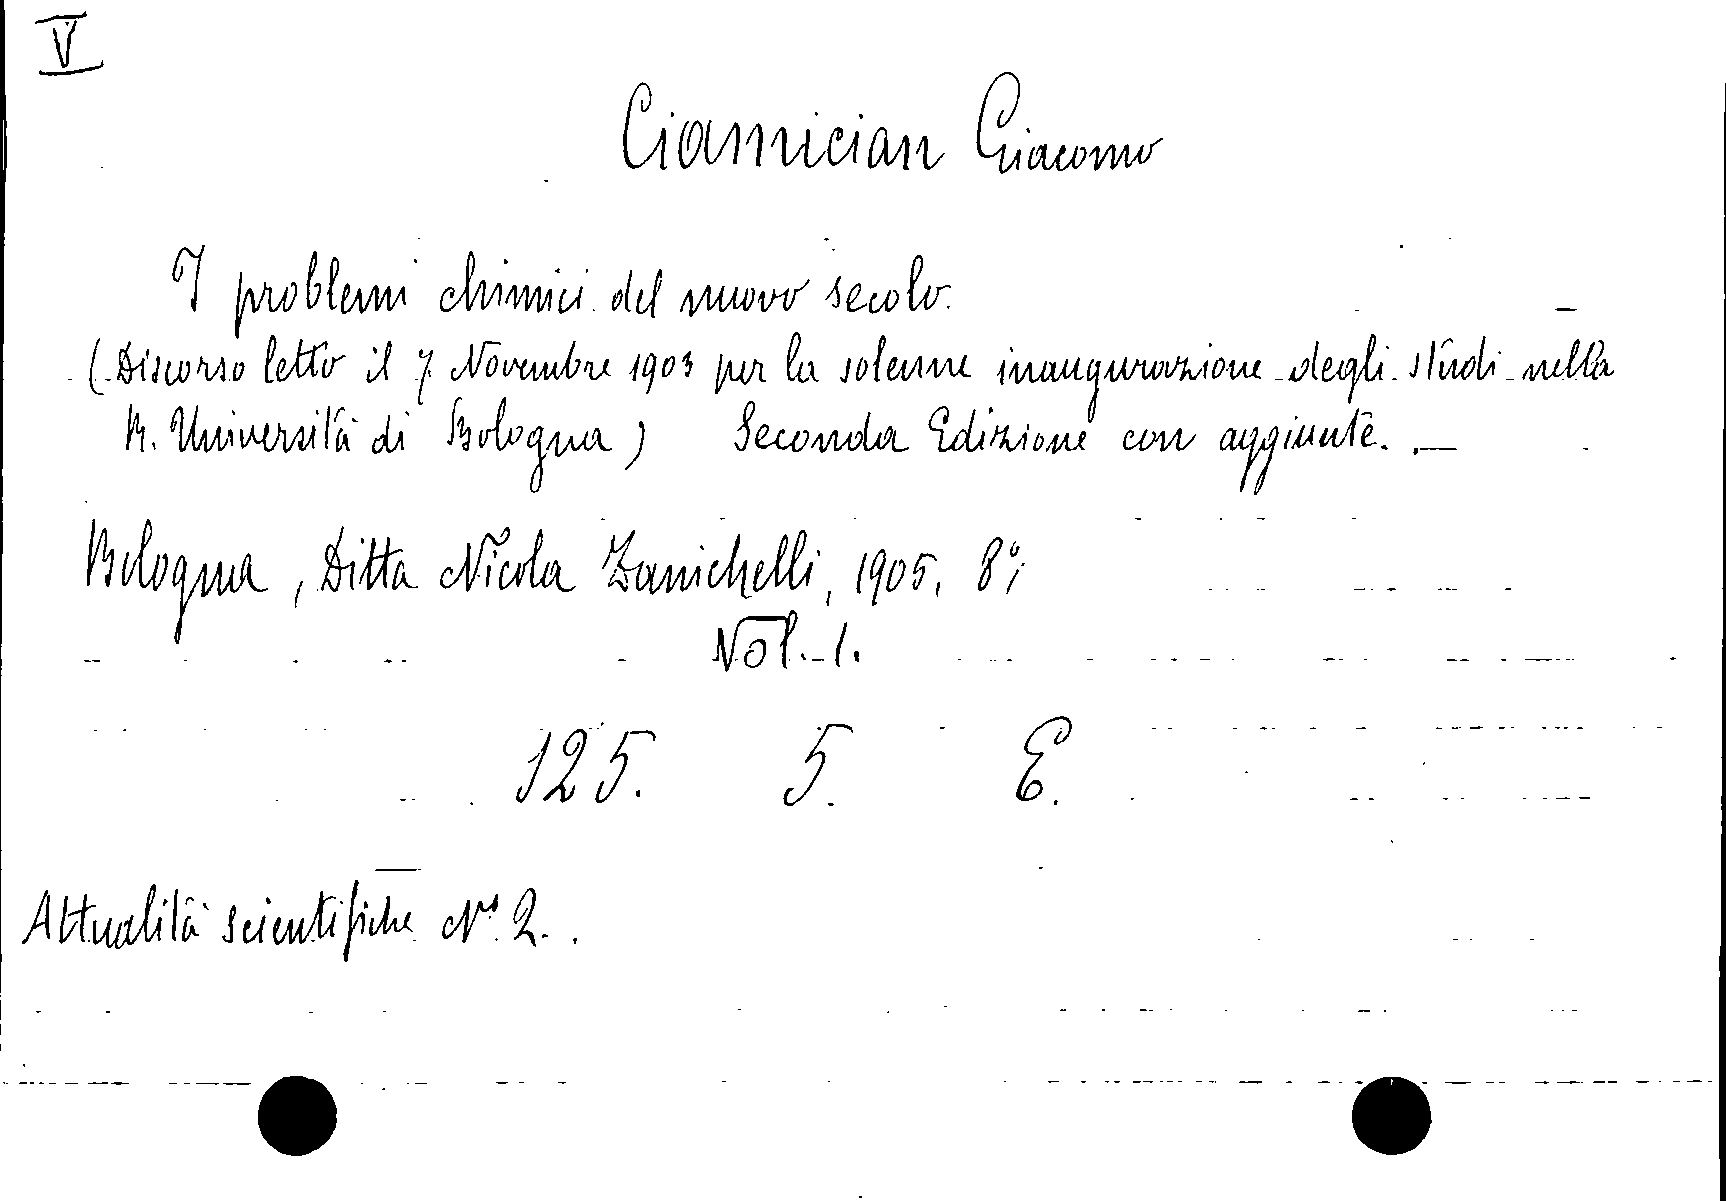 V
Ciamician Giacomo
I problemi chimici del nuovo secolo.
(Discorso letto il 7 Novembre 1903 per la solenne inaugurazione degli studi nella
R. Università di Bologna) Seconda Edizione con aggiunte. —
Bologna, Ditta Nicola Zanichelli, 1905, 8°;
Vol. 1.
125. 5. E.
Attualità scientifiche No. 2.